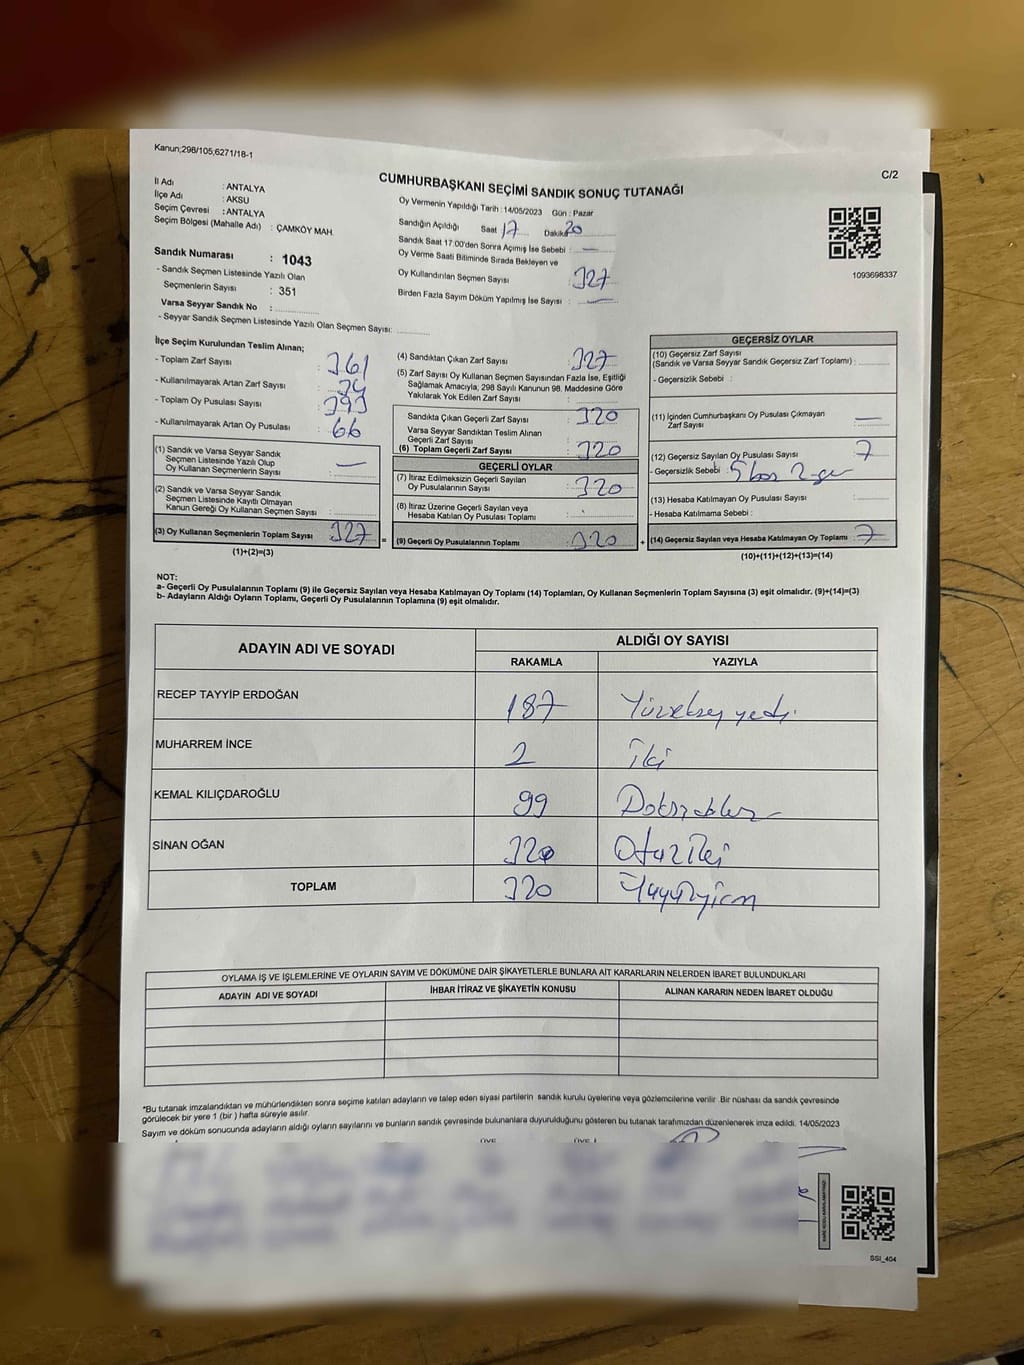 Kanun;298/105;6271/18-1
C/2
CUMHURBAŞKANI SEÇİMİ SANDIK SONUÇ TUTANAĞI
İl Adı : ANTALYA
İlçe Adı : AKSU
Seçim Çevresi : ANTALYA
Seçim Bölgesi (Mahalle Adı) : ÇAMKÖY MAH.
Sandık Numarası : 1043
- Sandık Seçmen Listesinde Yazılı Olan
Seçmenlerin Sayısı : 351
Varsa Seyyar Sandık No :
- Seyyar Sandık Seçmen Listesinde Yazılı Olan Seçmen Sayısı:
Oy Vermenin Yapıldığı Tarih : 14/05/2023 Gün : Pazar
Sandığın Açıldığı Saat 17 Dakika 20
Sandık Saat 17.00'den Sonra Açımış İse Sebebi : —
Oy Verme Saati Bitiminde Sırada Bekleyen ve
Oy Kullandırılan Seçmen Sayısı : 327
Birden Fazla Sayım Döküm Yapılmış İse Sayısı : —
1093698337
İlçe Seçim Kurulundan Teslim Alınan;
- Toplam Zarf Sayısı : 361
- Kullanılmayarak Artan Zarf Sayısı : 34
- Toplam Oy Pusulası Sayısı : 393
- Kullanılmayarak Artan Oy Pusulası : 66
(1) Sandık ve Varsa Seyyar Sandık
Seçmen Listesinde Yazılı Olup
Oy Kullanan Seçmenlerin Sayısı : —
(2) Sandık ve Varsa Seyyar Sandık
Seçmen Listesinde Kayıtlı Olmayan
Kanun Gereği Oy Kullanan Seçmen Sayısı :
(3) Oy Kullanan Seçmenlerin Toplam Sayısı : 327
(1)+(2)=(3)
=
(4) Sandıktan Çıkan Zarf Sayısı : 327
(5) Zarf Sayısı Oy Kullanan Seçmen Sayısından Fazla İse, Eşitliği
Sağlamak Amacıyla, 298 Sayılı Kanunun 98. Maddesine Göre
Yakılarak Yok Edilen Zarf Sayısı :
Sandıkta Çıkan Geçerli Zarf Sayısı : 320
Varsa Seyyar Sandıktan Teslim Alınan
Geçerli Zarf Sayısı :
(6) Toplam Geçerli Zarf Sayısı : 320
GEÇERLİ OYLAR
(7) İtiraz Edilmeksizin Geçerli Sayılan
Oy Pusulalarının Sayısı : 320
(8) İtiraz Üzerine Geçerli Sayılan veya
Hesaba Katılan Oy Pusulası Toplamı :
(9) Geçerli Oy Pusulalarının Toplamı : 320
+
GEÇERSİZ OYLAR
(10) Geçersiz Zarf Sayısı
(Sandık ve Varsa Seyyar Sandık Geçersiz Zarf Toplamı) :
- Geçersizlik Sebebi :
(11) İçinden Cumhurbaşkanı Oy Pusulası Çıkmayan
Zarf Sayısı : —
(12) Geçersiz Sayılan Oy Pusulası Sayısı : 7
- Geçersizlik Sebebi :
(13) Hesaba Katılmayan Oy Pusulası Sayısı :
- Hesaba Katılmama Sebebi :
(14) Geçersiz Sayılan veya Hesaba Katılmayan Oy Toplamı : 7
(10)+(11)+(12)+(13)=(14)
NOT:
a- Geçerli Oy Pusulalarının Toplamı (9) ile Geçersiz Sayılan veya Hesaba Katılmayan Oy Toplamı (14) Toplamları, Oy Kullanan Seçmenlerin Toplam Sayısına (3) eşit olmalıdır. (9)+(14)=(3)
b- Adayların Aldığı Oyların Toplamı, Geçerli Oy Pusulalarının Toplamına (9) eşit olmalıdır.
ADAYIN ADI VE SOYADI
ALDIĞI OY SAYISI
RAKAMLA YAZIYLA
RECEP TAYYİP ERDOĞAN 187 Yüzseksenyedi
MUHARREM İNCE 2 İki
KEMAL KILIÇDAROĞLU 99 Doksandokuz
SİNAN OĞAN Otuziki
TOPLAM 320 Üçyüzyirmi
OYLAMA İŞ VE İŞLEMLERİNE VE OYLARIN SAYIM VE DÖKÜMÜNE DAİR ŞİKAYETLERLE BUNLARA AİT KARARLARIN NELERDEN İBARET BULUNDUKLARI
ADAYIN ADI VE SOYADI İHBAR İTİRAZ VE ŞİKAYETİN KONUSU ALINAN KARARIN NEDEN İBARET OLDUĞU
*Bu tutanak imzalandıktan ve mühürlendikten sonra seçime katılan adayların ve talep eden siyasi partilerin sandık kurulu üyelerine veya gözlemcilerine verilir. Bir nüshası da sandık çevresinde
görülecek bir yere 1 (bir ) hafta süreyle asılır.
Sayım ve döküm sonucunda adayların aldığı oyların sayılarını ve bunların sandık çevresinde bulunanlara duyurulduğunu gösteren bu tutanak tarafımızdan düzenlenerek imza edildi. 14/05/2023
SSI_404